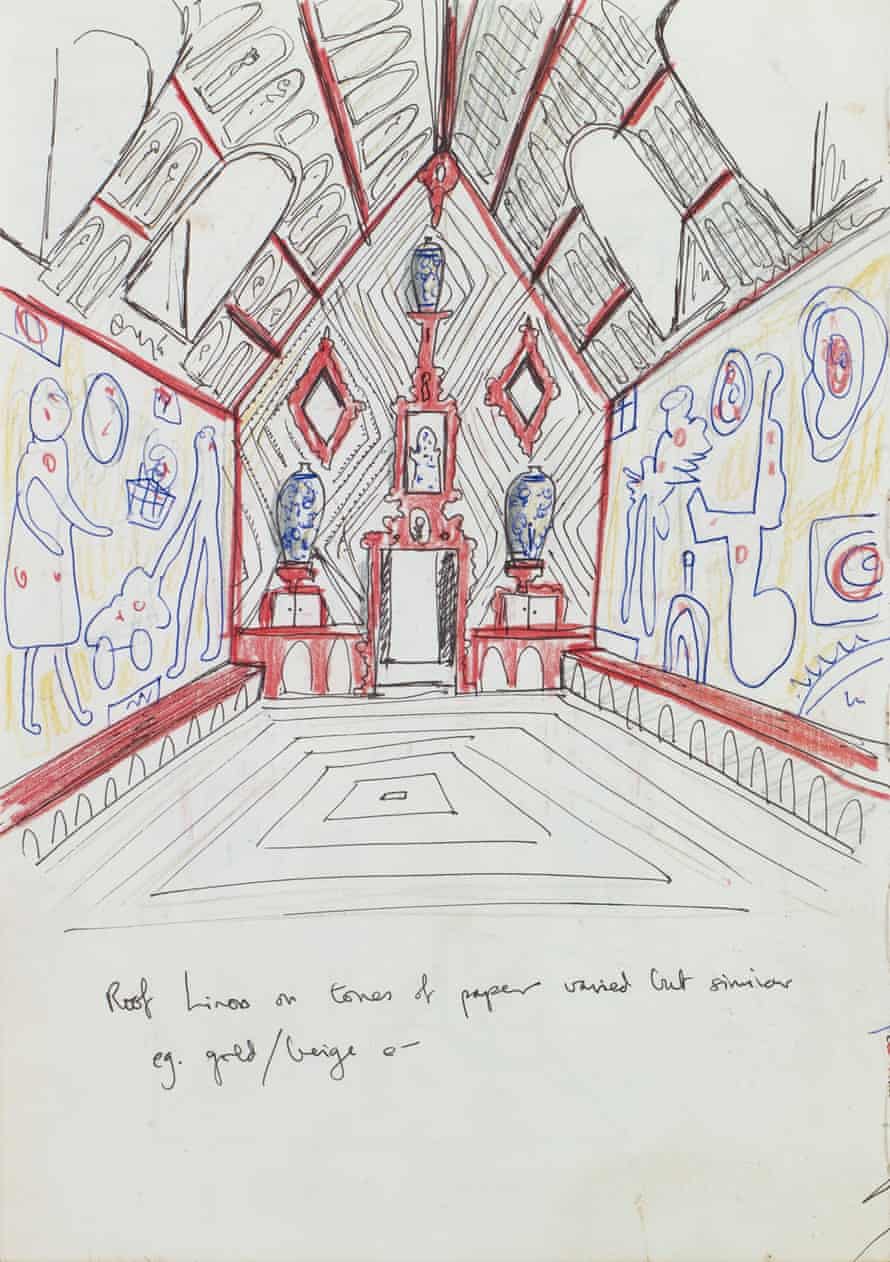 Roof Linos on tones of paper varied but similar
eg. gold/beige